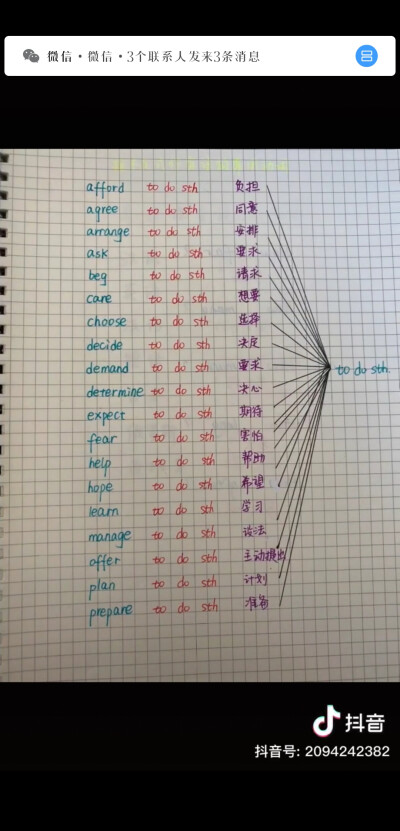 微信·微信·3个联系人发来3条消息
afford to do sth 负担
agree to do sth 同意
arrange to do sth 安排
ask to do sth 要求
beg to do sth 请求
care to do sth 想要
choose to do sth 选择
decide to do sth 决定
demand to do sth 要求
to do sth.
determine to do sth 决心
expect to do sth 期待
fear to do sth 害怕
help to do sth 帮助
hope to do sth 希望
learn to do sth 学习
manage to do sth 设法
offer to do sth 主动提出
plan to do sth 计划
prepare to do sth 准备
抖音
抖音号: 2094242382